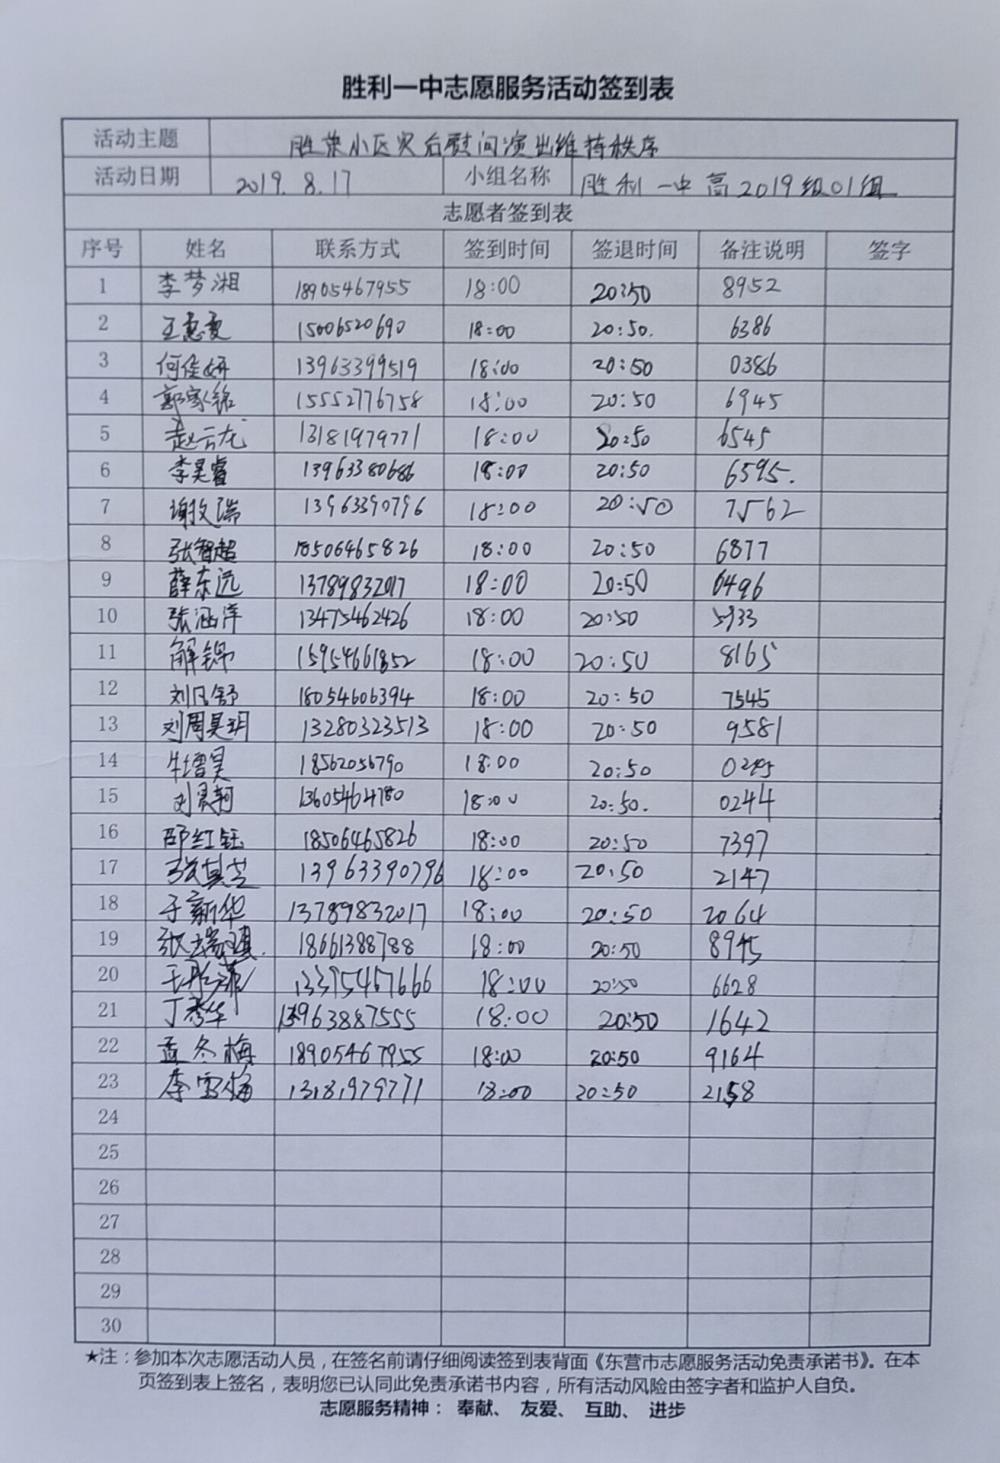 胜利一中志愿服务活动签到表
活动主题 胜荣小区灾后慰问演出维持秩序
活动日期 2019.8.17 小组名称 胜利一中高2019级01组
志愿者签到表
序号 姓名 联系方式 签到时间 签退时间 备注说明 签字
1 李梦湘 18905467955 18:00 20:50 8952
2 王惠雯 15006520690 18:00 20:50. 6386
3 何佳妍 13963399519 18:00 20:50 0386
4 郭家铭 15552776758 18:00 20:50 6945
5 赵云龙 13181979771 18:00 20:50 6545
6 李昊睿 13963380686 18:00 20:50 6595.
7 谢文瑞 13963390796 18:00 20:50 7562
8 张智超 18506465826 18:00 20:50 6877
9 薛东远 13789832017 18:00 20:50 6496
10 张涵洋 13475462426 18:00 20:50 5933
11 解锦 15954661852 18:00 20:50 8165
12 刘凡舒 18054606394 18:00 20:50 7545
13 刘周昊玥 13280323513 18:00 20:50 9581
14 牛增昊 18562056790 18:00 20:50
15 13605464780 18:00 20:50. 0244
16 邵红钰 18506465826 18:00 20:50 7397
17 张其芝 13963390796 18:00 20:50 2147
18 于新华 13789832017 18:00 20:50 2064
19 张瑞琪 18661388788 18:00 20:50 8945
20 13395467666 18:00 20:50 6628
21 丁秀华 13963887555 18:00 20:50 1642
22 孟冬梅 18905467955 18:00 20:50 9164
23 李雪梅 13181979771 18:00 20:50 2158
24
25
26
27
28
29
30
★注：参加本次志愿活动人员，在签名前请仔细阅读签到表背面《东营市志愿服务活动免责承诺书》。在本
页签到表上签名，表明您已认同此免责承诺书内容，所有活动风险由签字者和监护人自负。
志愿服务精神： 奉献、 友爱、 互助、 进步